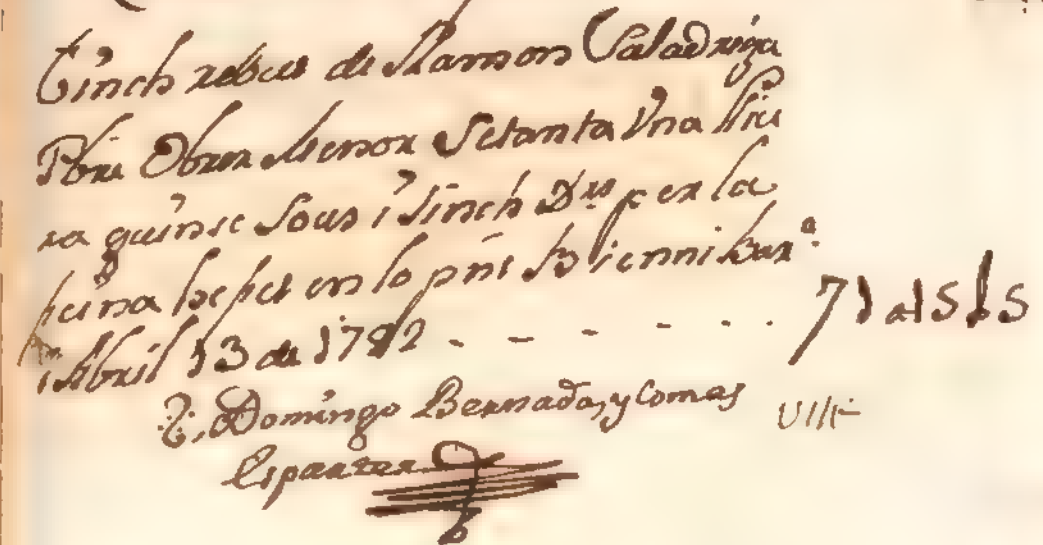 Tinch rebut de Ramon Saladriga
Pbre Obrer Menor Setanta Una lliu
ra quinse sous i sinch Drs per la
feina he fet en lo pnt Bienni Barª
i Abril 13 de 1792 - - - - - . 71 a15 s 5
Domingo Bernada, y Comas
Esparter